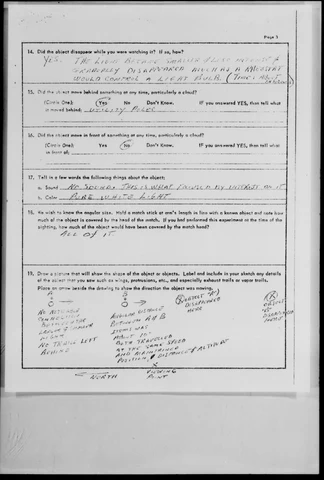 Page 3
14. Did the object disappear while you were watching it? If so, how?
YES. THE LIGHT BECAME SMALLER &
DISAPPEARED MUCH AS A RHEOSTAT
WOULD CONTROL A LIGHT BULB (TIME ABOUT
15. Did the object move behind something at any time, particularly a cloud?
(Circle One): Yes No Don't Know. If you answered YES, then tell what
it moved behind: UTILITY POLES
16. Did the object move in front of something at any time, particularly a cloud?
(Circle One): Yes No Don't Know. If you answered YES, then tell what
in front of:
17. Tell in a few words the following things about the object:
a. Sound NO SOUND. THIS IS WHAT MY INTEREST ON IT
b. Color PURE WHITE LIGHT
18. We wish to know the angular size. Hold a match stick at arm's length in line with a known object and note how
much of the object is covered by the head of the match. If you had performed this experiment at the time of the
sighting, how much of the object would have been covered by the match head?
ALL OF IT
19. Draw a picture that will show the shape of the object or objects. Label and include in your sketch any details
of the object that you saw such as wings, protrusions, etc., and especially exhaust trails or vapor trails.
Place an arrow beside the drawing to show the direction the object was moving.
NO
CONNECTION
LIGHT
NO TRAIL LEFT
BEHIND
DISTANCE
BETWEEN A & B
ITEMS WAS
ABOUT 10"
BOTH TRAVELLED
AT THE SAME SPEED
AND MAINTAINED
POSITION, DISTANCE & ALTITUDE
OBJECT "A"
DISAPPEARED
HERE
OBJECT
"B"
DISAPPEARED
NORTH
X
VIEWING
POINT